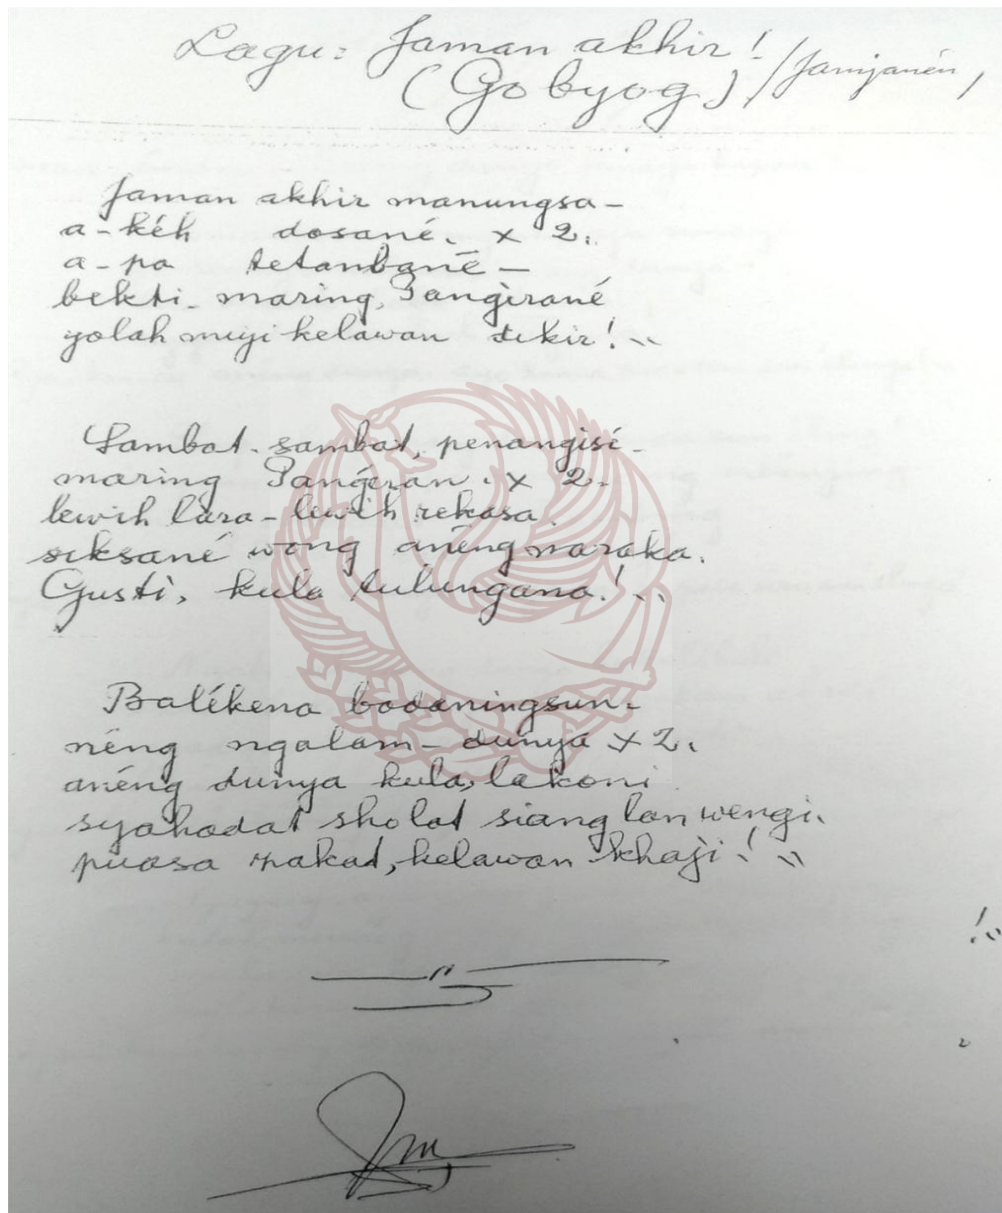 Lagu: Jaman akhir!
(Gobyog) / Janjanén,
Jaman akhir manungsa-
a-kéh dosané. x 2.
a-pa tetambané-
bekti maring, Pangérané
yolah muji kelawan dikir!"
Sambat-sambat, penangisé-
maring Pangéran. x 2.
lewih lara-lewih rekasa.
siksané wong anéng naraka.
Gusti, kula tulungana!"
Balékena badaningsun-
néng ngalam-dunya x 2.
anéng dunya kula, lakoni
syahadat sholat siang lan wengi.
puasa zakat, kelawan khaji!"